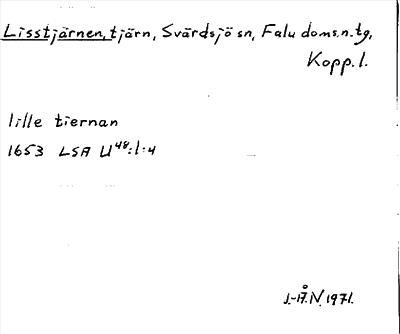 Lisstjärnen, tjärn, Svärdsjö sn, Falu doms.n.tg,
Kopp. l.
lille tiernan
1653 LSA U48:1:4
J.-Å. N. 1971.